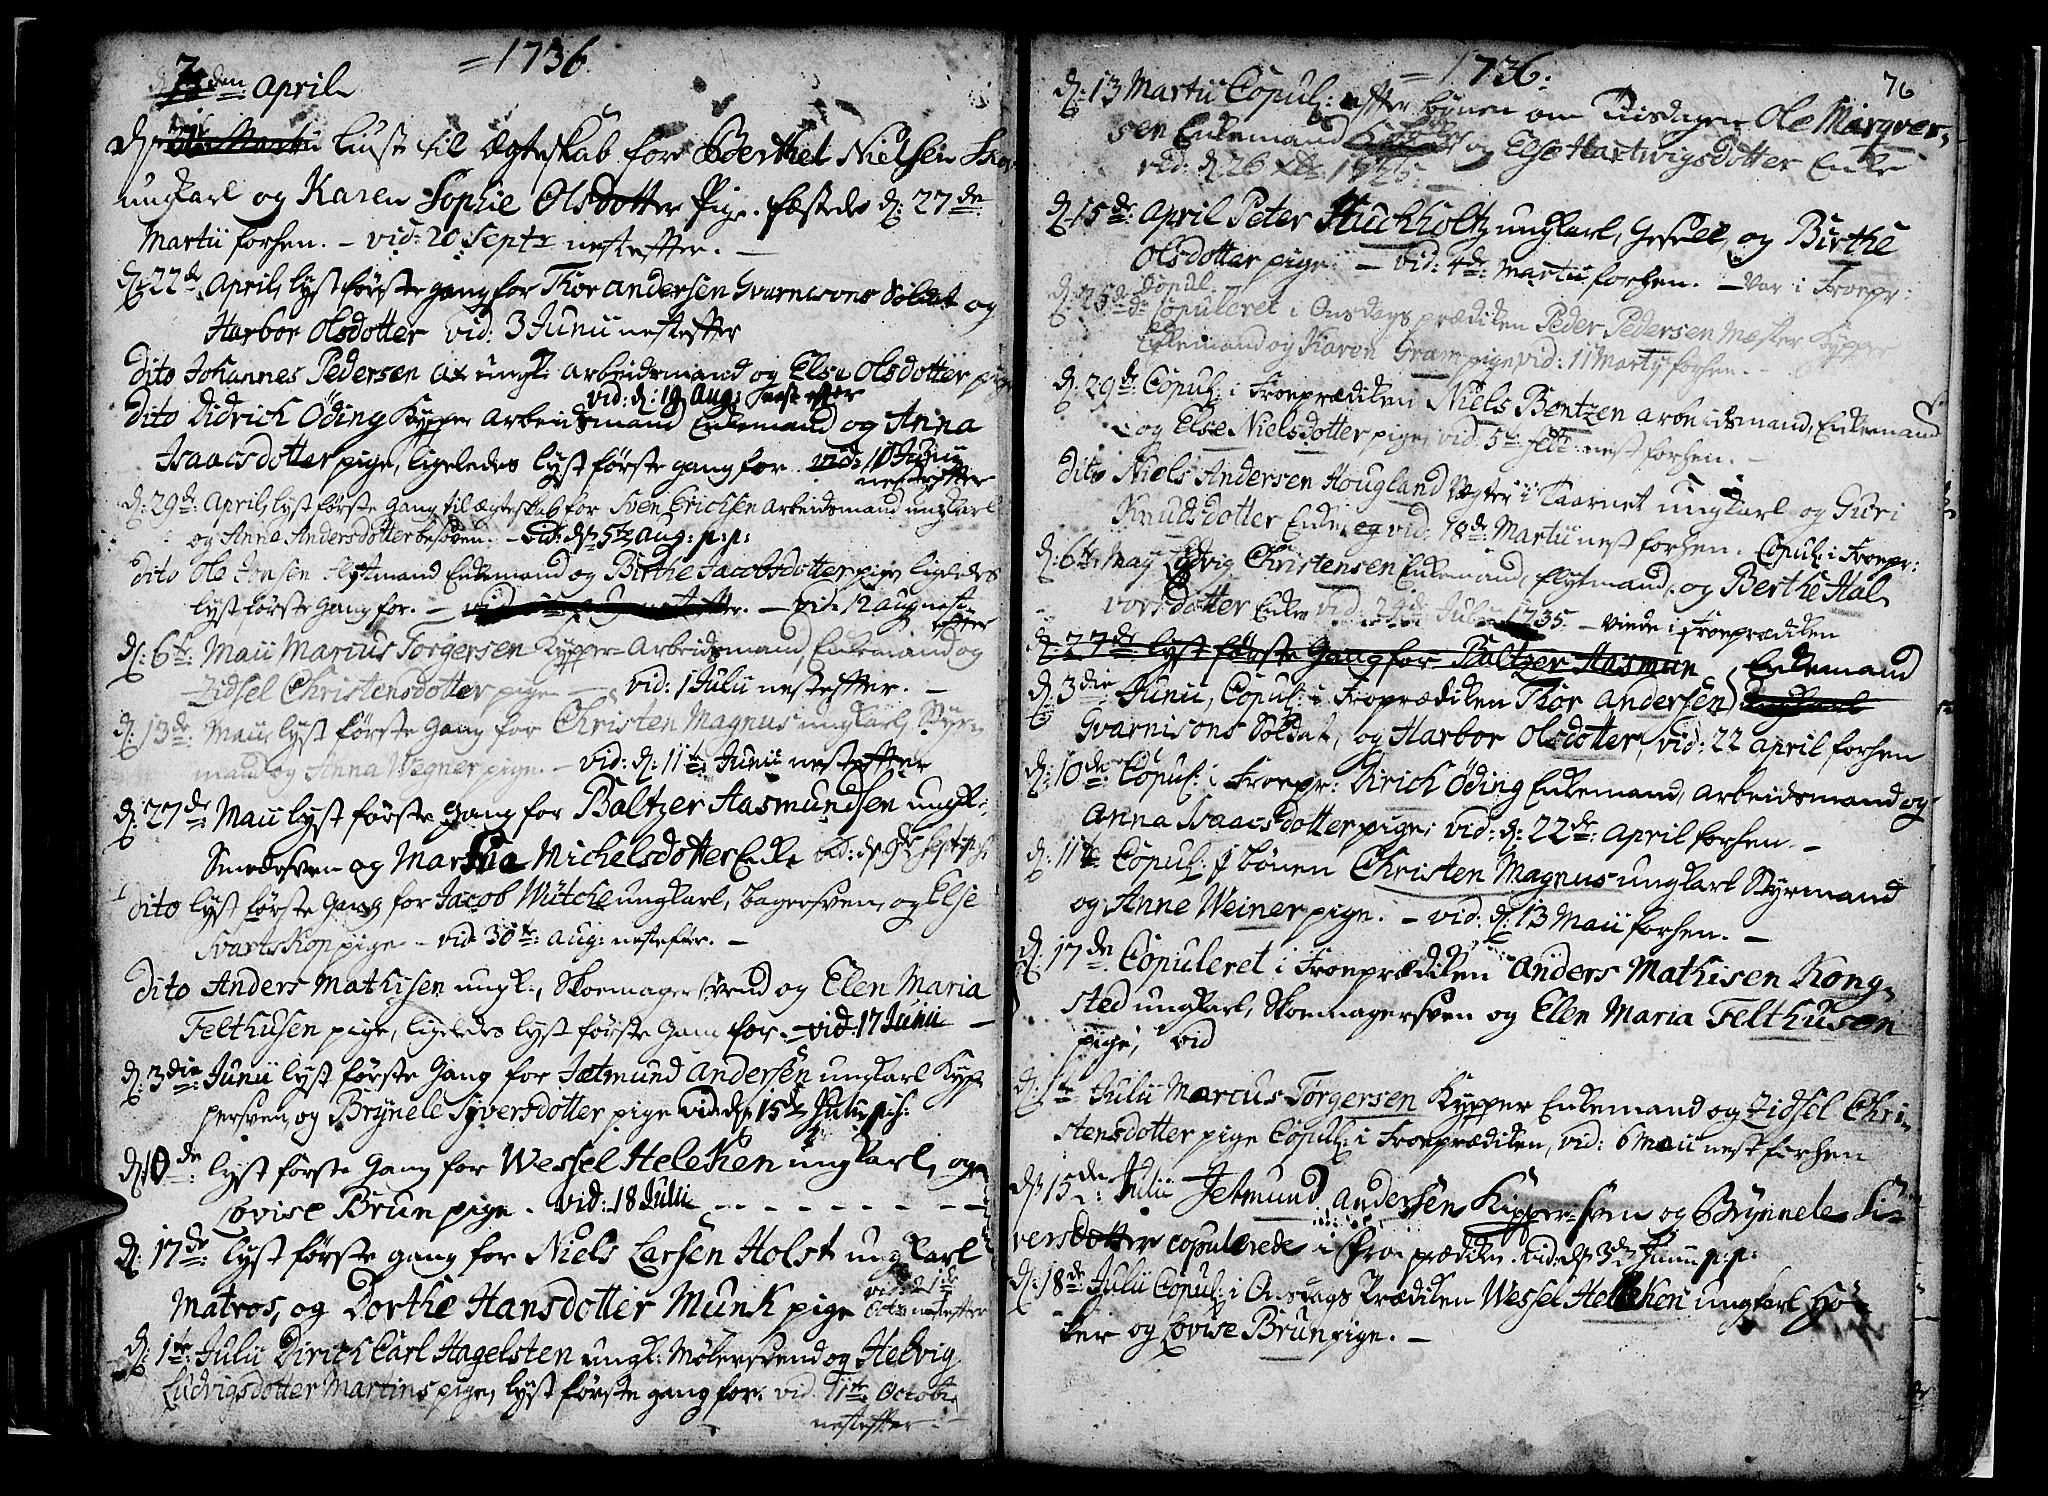 = 1736.
7 den April
liust til Ægteskab for Berthel Nielsen
ungkarl og Karen Sophie Olsdotter Pige. fæstede d: 27de
Martii forhen. – vid: 20 Septr nestefter. –
d: 22de April, lyst første gang for Thor Andersen Gvarnisons Soldat og
Harbor Olsdotter vid: 3 Junii nestefter
Dito Johannes Pedersen ungk: Arbeidsmand og Else Olsdotter pige
vid: d: 19 Aug: nest efter
Dito Didrich Öding Kypper Arbeidsmand Enkemand og Anna
Isaacsdotter pige, ligeledes lyst første gang for. vid: 10 Junii
nestefter
d: 29de April, lyst første Gang til ægteskab for Sven Erichsen Arbeidsmand ungkarl
og Anne Andersdotter besoven. – vid: d: 5te Aug: p: p:
Dito Ole Jonsen flytmand Enkemand og Birthe Jacobsdotter pige, ligledes
lyst første Gang for. – – vid: 12 Aug nest-
efter
d: 6te Maii Marcus Torgersen Kypper-Arbeidsmand, Enkemand og
Zidsel Christensdotter pige – vid: 1 Julii nestefter. –
d: 13de Maii, lyst første Gang for Christen Magnus ungkarl, Styr-
mand og Anna Wegner pige. – vid: d: 11te Junii nestefter
d: 27de Maii lyst første Gang for Baltzer Aasmundsen ungk:
Smedesven og Martha Michelsdotter Enke vid: d: 9de Sept:
Dito lyst første Gang for Jacob Mütche ungkarl, bagersven, og Else
Svartskop pige – vid 30te: Aug: nestefter. –
Dito Anders Mathisen ungk:, Skoemager Svend og Elen Maria
Felthusen pige, ligeledes lyst første Gang for. – vid: 17 Junii –
d: 3die Junii lyst første Gang for Jetmund Andersen ungkarl Kyp-
persven, og Brynele Syversdotter pige vid: d: 15de Julii
d: 10de: lyst første Gang for Wessel Heleken ungkarl, og
Lovise Brun pige. vid: 18 Julii
d: 17de: lyst første gang for Niels Larsen Holst ungkarl
Matros, og Dorthe Hansdotter Munk pige vid: 21de
Octr nestefter
d: 1te: Julii Dirich Carl Hagelsten ungk: Møllersvend og Hedvig
Ludvigsdotter Martins pige, lyst første gang for. vid. 11te Octobr
nestefter. –
= 1736.
76
d: 13 Martii Copul: efter bönen om Tisdagen Ole Margver-
sen Enkemand og Else Hartvigsdotter Enke
vid: d: 26 1725.
d: 15de: April Peter Stuchholtz ungkarl, Gesell, og Birthe
Olsdotter pige. – vid: 4de: Martii forhen. – Var i Froepr:
d: 25de Copuleret i Onsdags prædiken Peder Pedersen Mester Kypper
Enkemand og Karen Gram pige vid: 11 Marty forhen. –
d: 29de: Copul: i Froeprædiken Niels Bentzen Arbeidsmand, Enkemand
og Else Nielsdotter pige, vid: 5te nest forhen. –
Dito Niels Andersen Hougland Vegter i Taarnet ungkarl og Guri
Knudsdotter Enke, og vid: 18de Martii nest forhen. Copul: i Froepr:
d: 6te May Ludvig Christensen Enkemand, flytmand, og Berthe Hal-
vorsdotter Enke vid: 24de Julii 1735. – Viede i Froeprædiken
d: 27de lyst første Gang for Baltzer Aasmun
d: 3die Junii, Copul: i Froprædiken Thor Andersen Enkemand ungkarl
Gvarnisons Soldat, og Harbor Olsdotter, vid: 22 April forhen
d: 10de Copul: i Froepr: Dirich Öding Enkemand Arbeidsmand og
Anna Isaacsdotter pige, vid: d: 22de: April forhen. –
d: 11te Copul: i bönen Christen Magnus ungkarl Styrmand
og Anne Weiner pige. – vid: d: 13 Maii forhen. –
d: 17de Copuleret i Froeprædiken Anders Mathisen Kong-
sted ungkarl, Skoemagersven og Elen Maria Felthusen
pige, vid
d: 1te Julii Marcus Torgersen Kypper Enkemand og Zidsel Chri-
stensdotter pige Copul: i Froeprædiken, vid: 6 Maii nest forhen
d: 15de: Julii Jetmund Andersen Kipper-sven og Brynnele Si-
versdotter copulerede i Froe prædiken. vid: d: 3de Junii p: p:
d: 18de Julii Copul: i Onsdags Prædiken Wessel Heleken ungkarl Hö-
ker og Lovise Brun pige. –